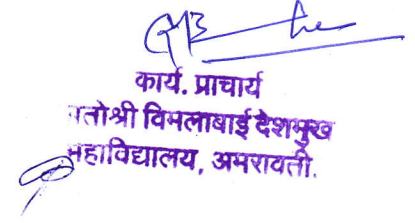 कार्य. प्राचार्य
मातोश्री विमलाबाई देशमुख
महाविद्यालय, अमरावती.